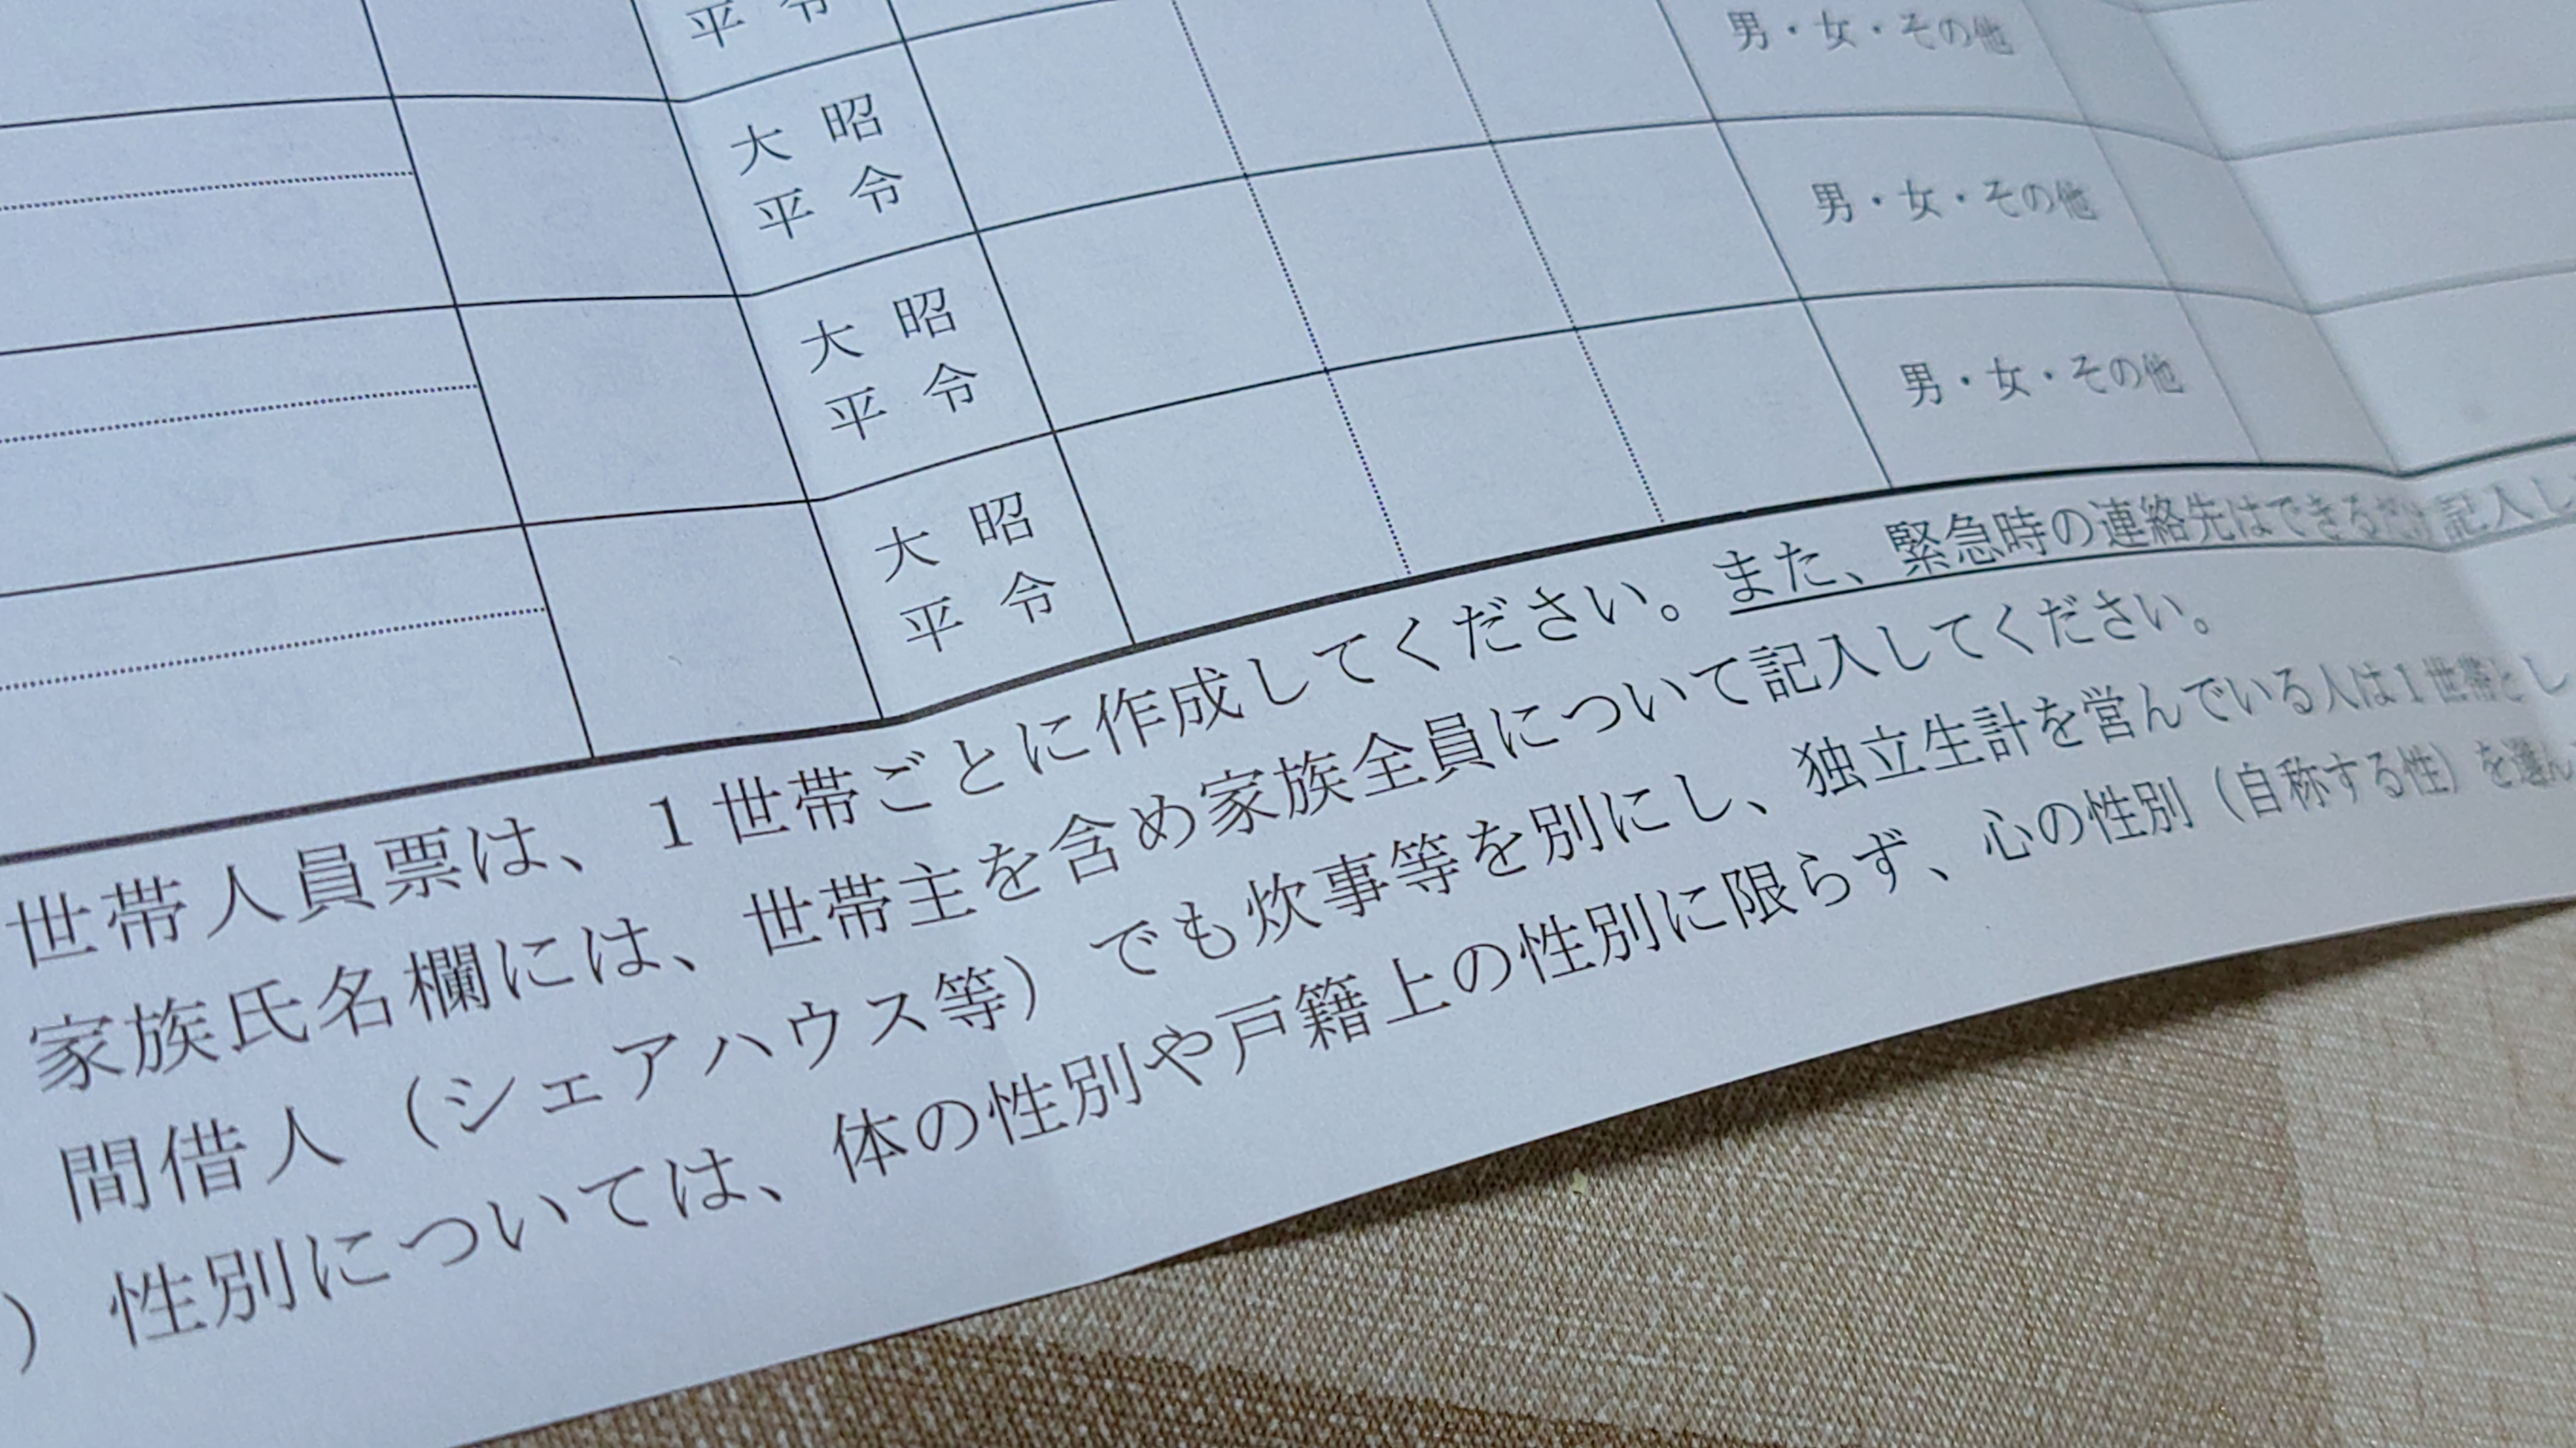 平 令
男・女・その他
大 昭
平 令
男・女・その他
大 昭
平 令
男・女・その他
大 昭
平 令
世帯人員票は、1世帯ごとに作成してください。また、緊急時の連絡先はできるだけ記入し
家族氏名欄には、世帯主を含め家族全員について記入してください。
間借人（シェアハウス等）でも炊事等を別にし、独立生計を営んでいる人は1世帯とし
）性別については、体の性別や戸籍上の性別に限らず、心の性別（自称する性）を選ん